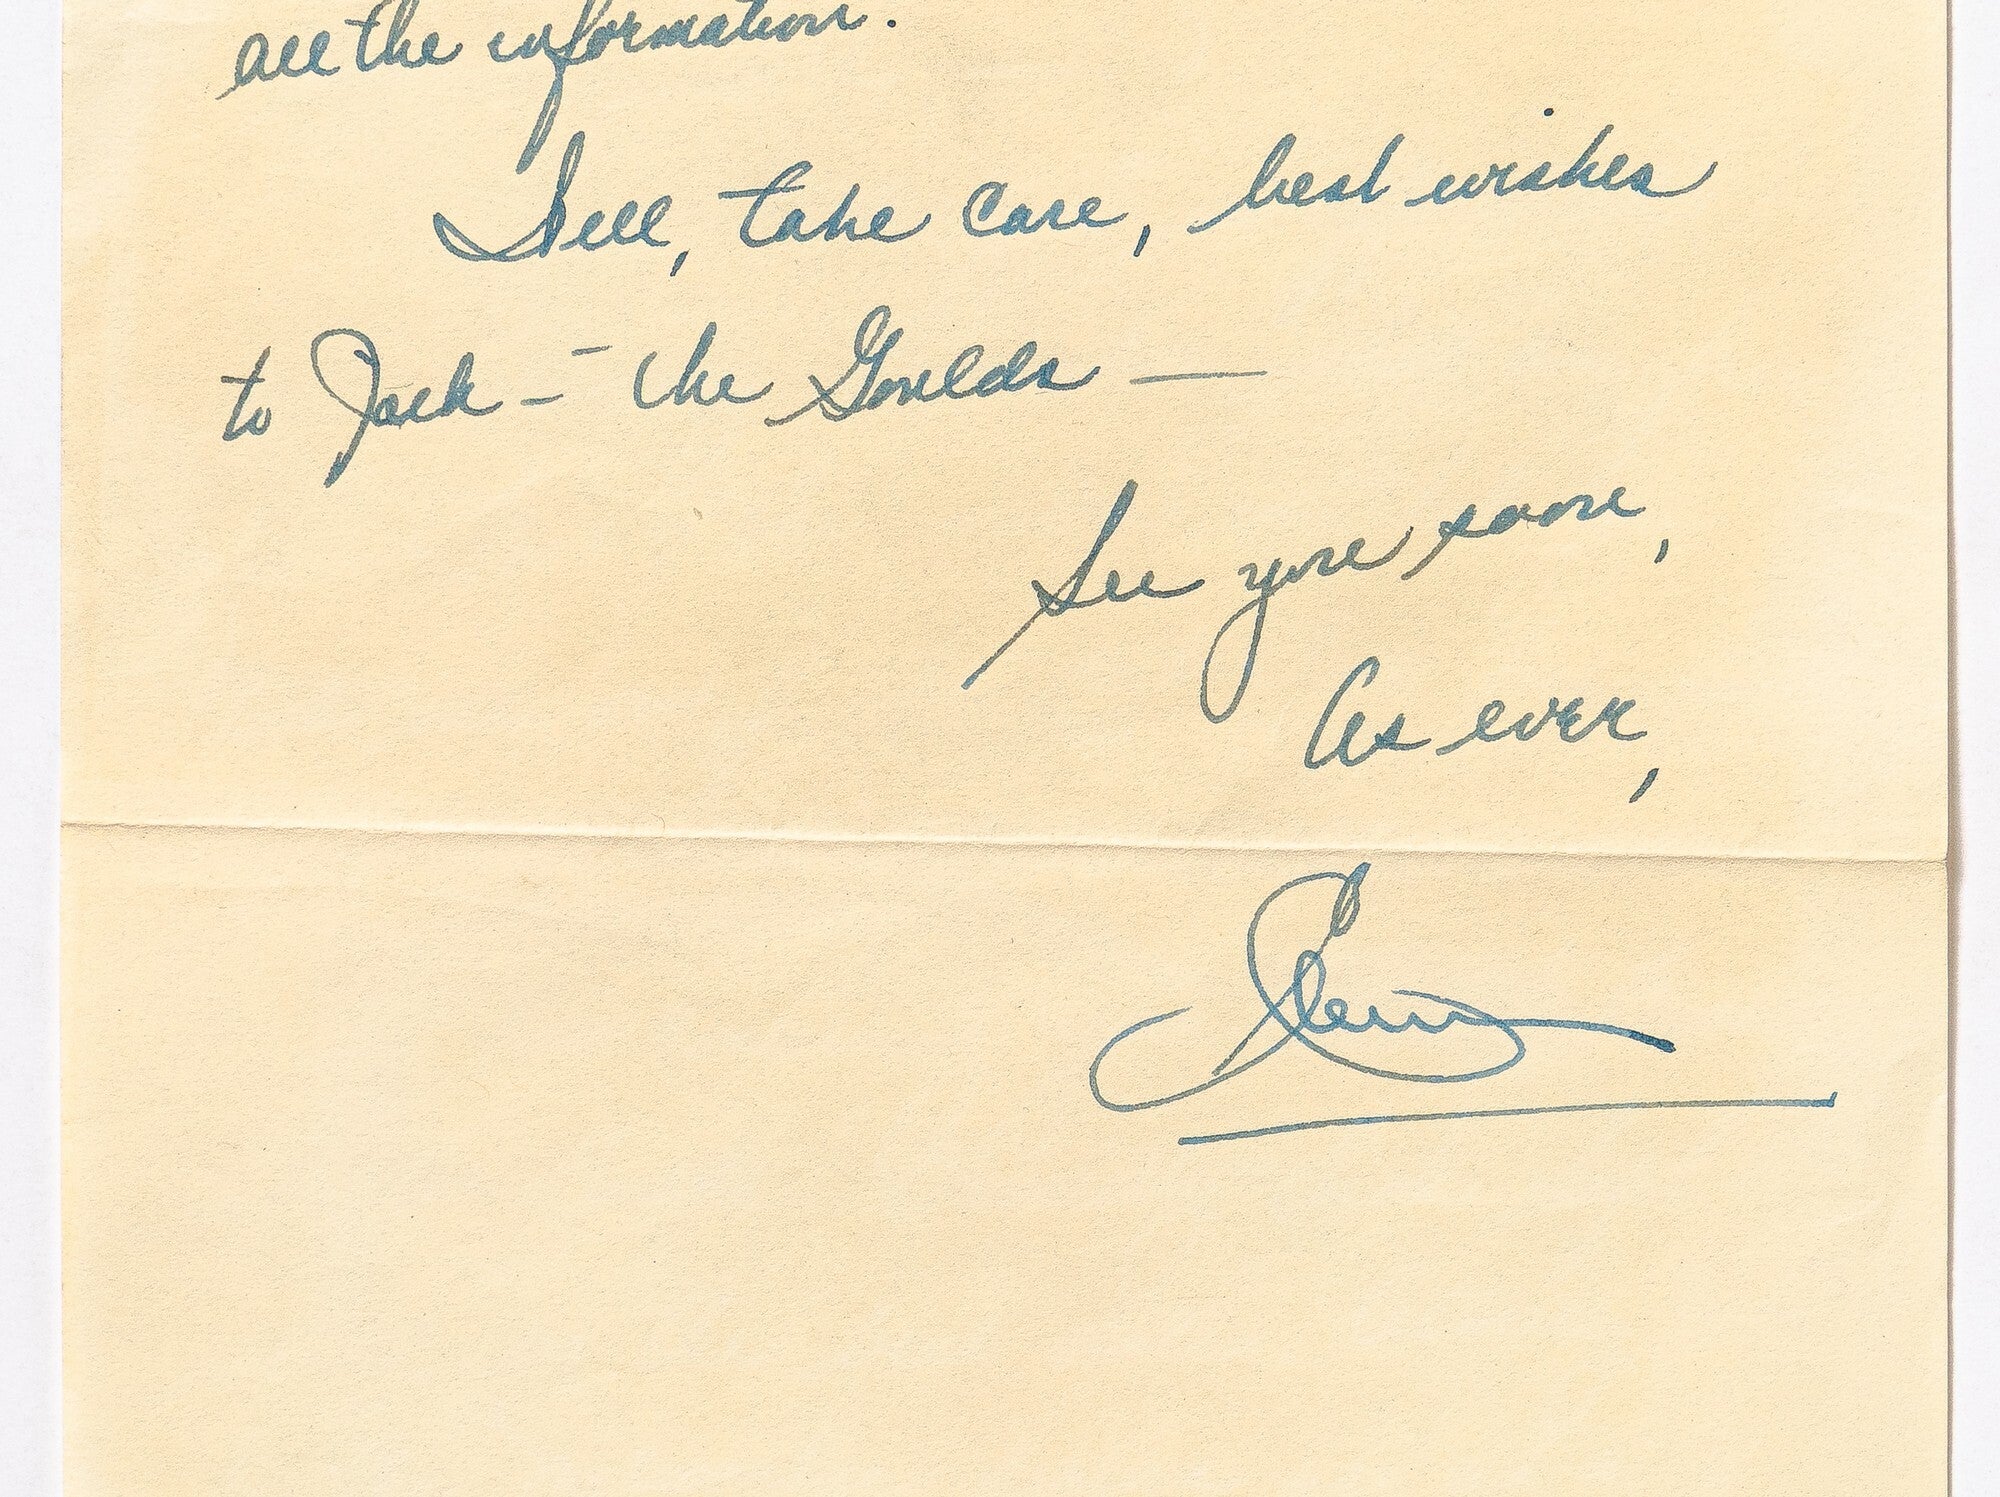 all the information.
take care, best wishes
to Jack - the Goulds —
See you soon,
As ever,